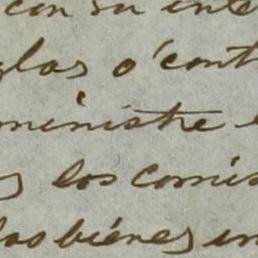 con su inte
glas o' cont
ministre e
los comis
los biénes en